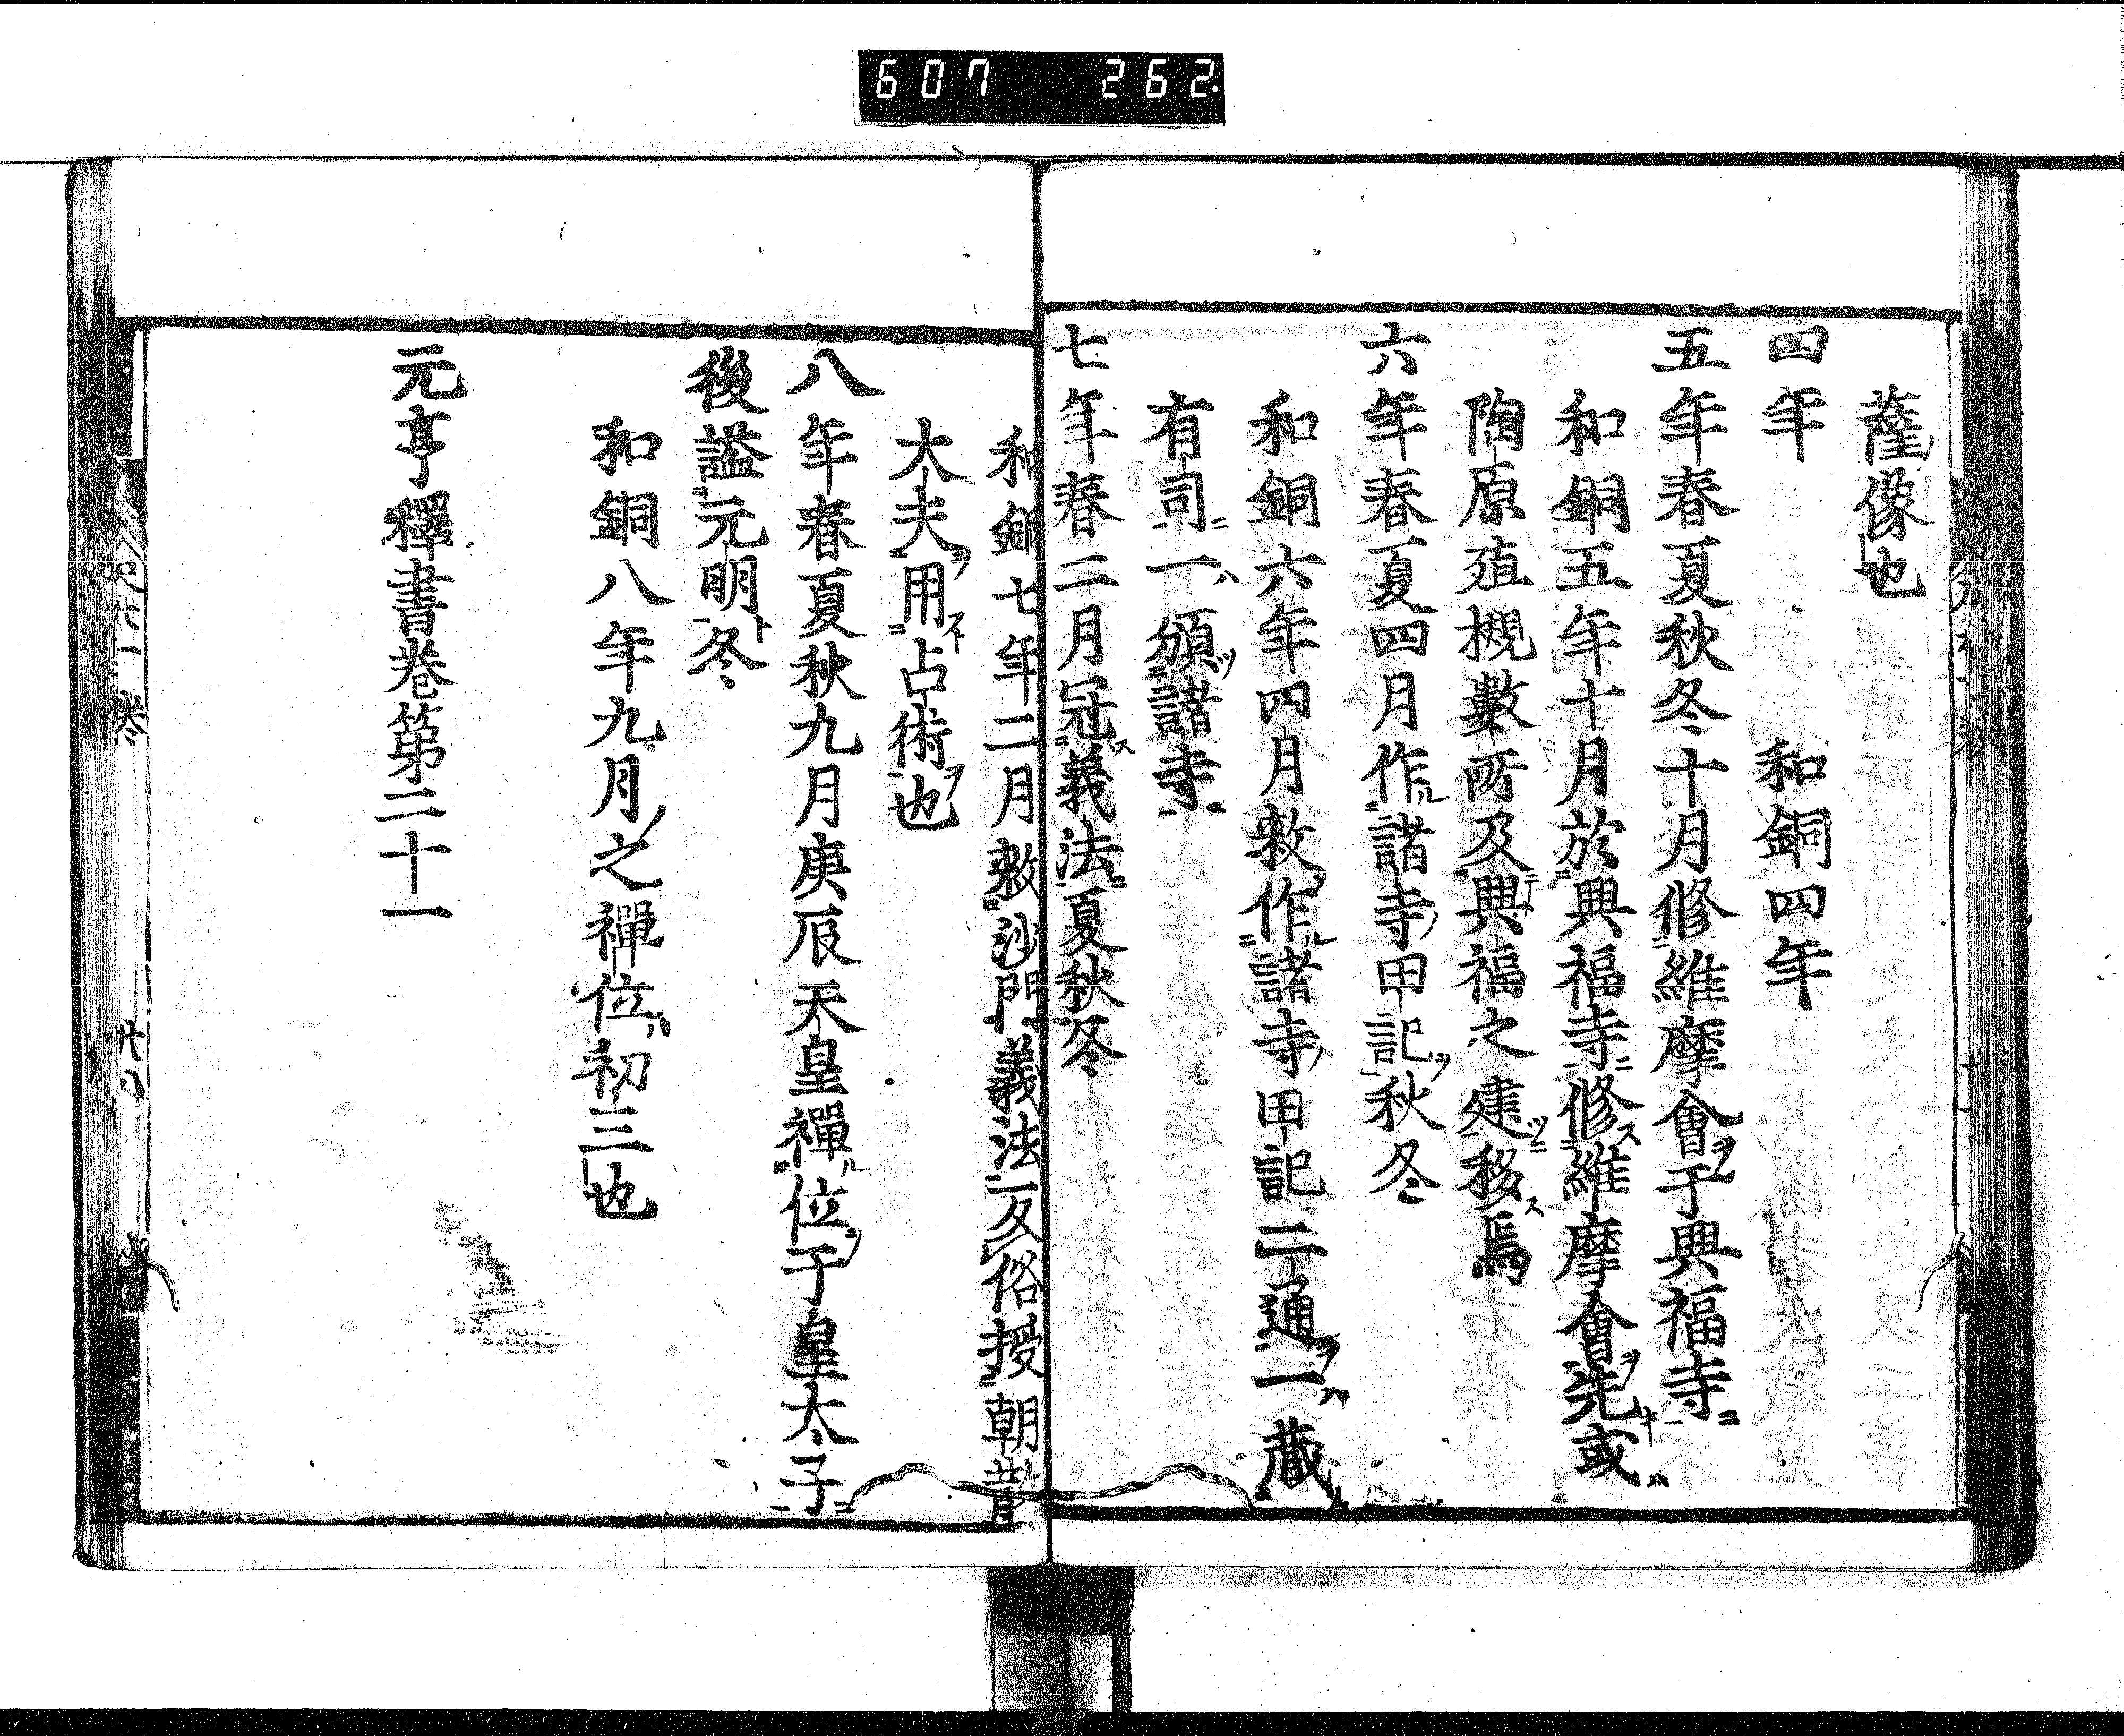 607 262
薩像也
四年 和銅四年
五年春夏秋冬十月修維摩會于興福寺
和銅五年十月於興福寺修維摩會先或
陶原殖槻數所及興福之建移焉
六年春夏四月作諸寺田記秋冬
和銅六年四月敕作諸寺田記二通一藏
有司一頒諸寺
七年春二月冠義法夏秋冬
和銅七年二月敕沙門義法反俗授朝
大夫用占術也
八年春夏秋九月庚辰天皇禪位于皇太子
後謚元明冬
和銅八年九月之禪位初三也
元亨釋書卷第二十一